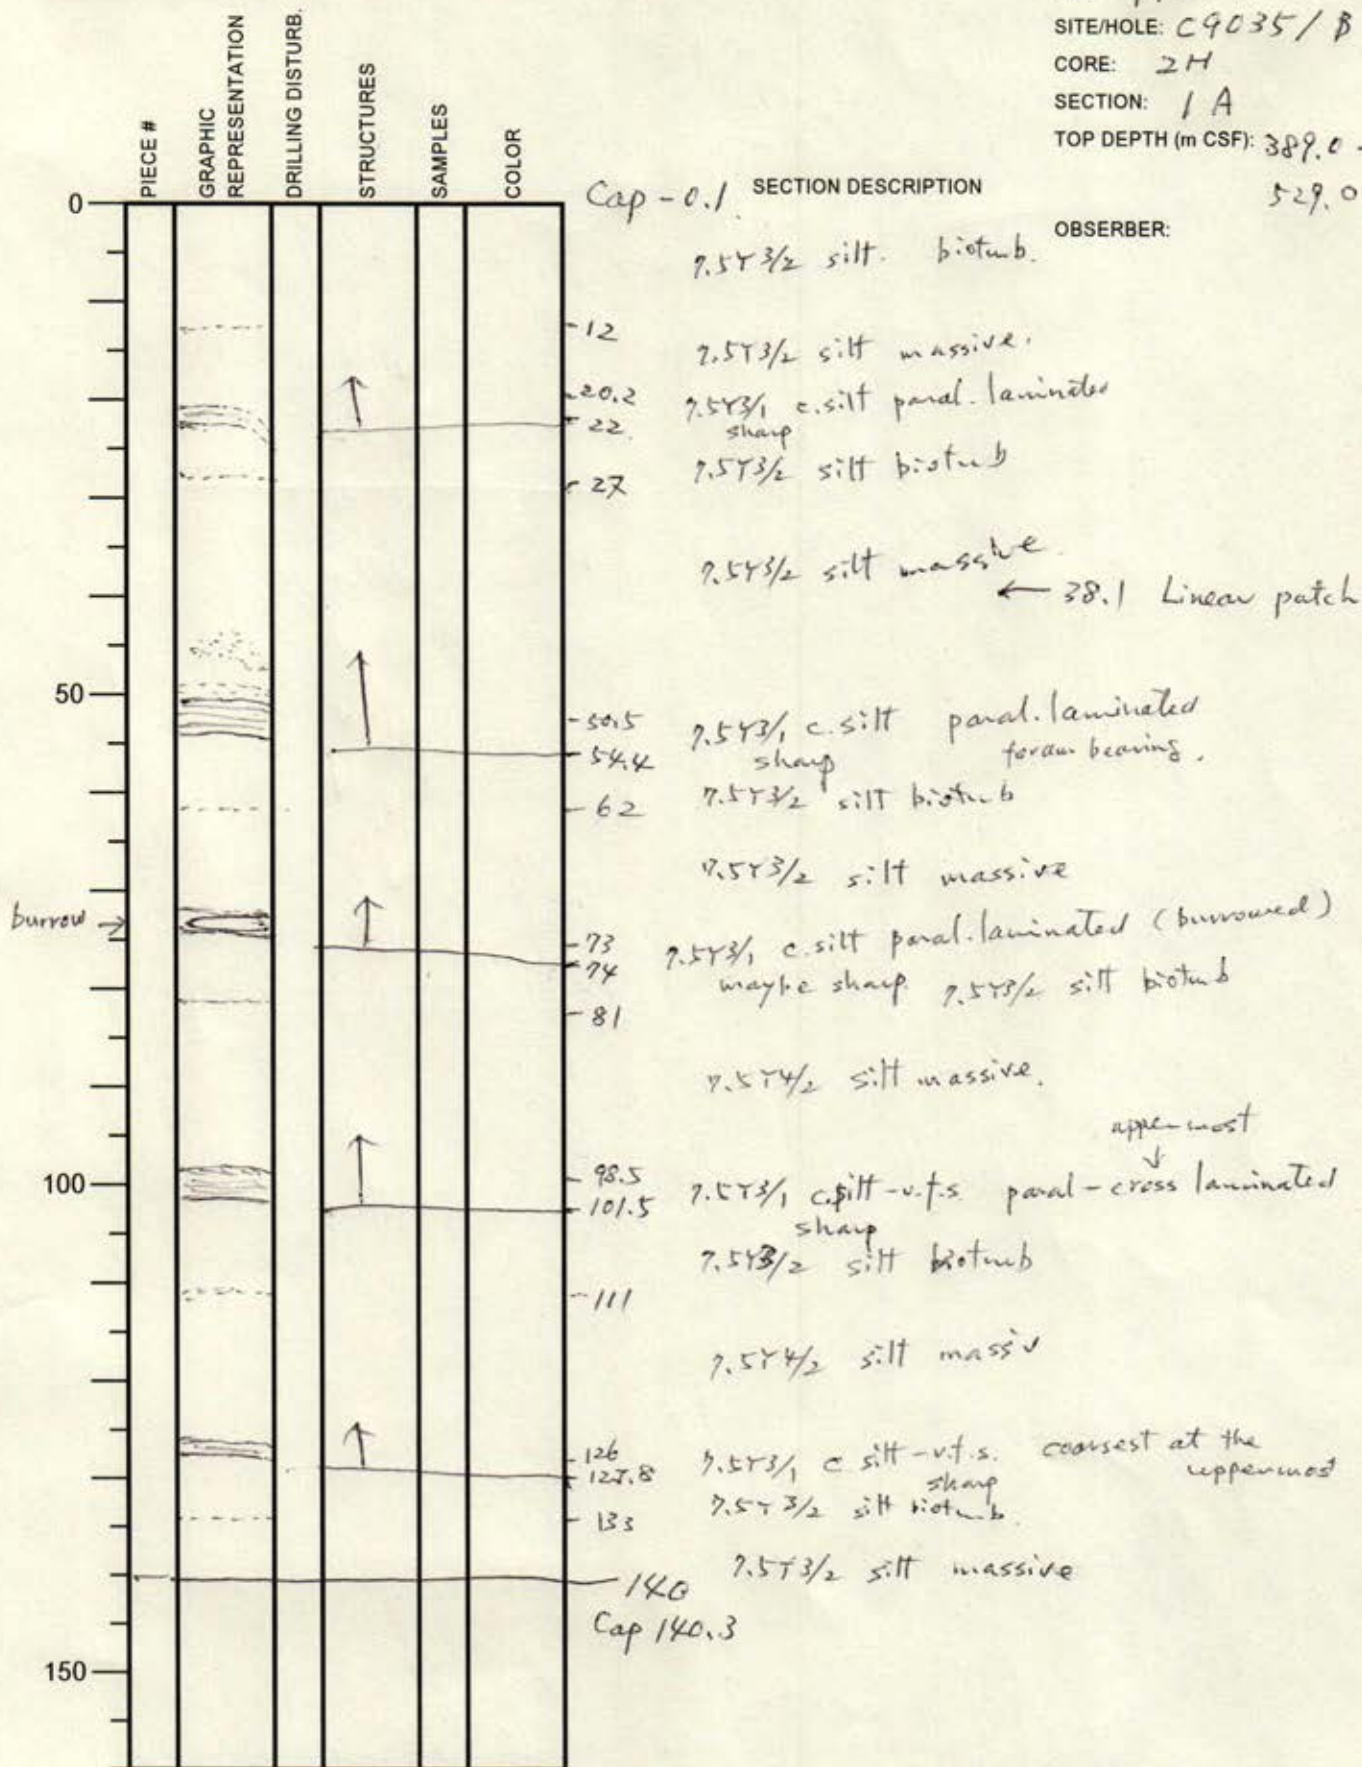 SITE/HOLE: C9035/B
CORE: 2H
SECTION: 1A
TOP DEPTH (m CSF): 389.0 -
529.0
OBSERBER:
PIECE #
GRAPHIC
REPRESENTATION
DRILLING DISTURB.
STRUCTURES
SAMPLES
COLOR
SECTION DESCRIPTION
0
Cap - 0.1
7.5Y3/2 silt. bioturb.
12
7.5Y3/2 silt massive.
20.2
7.5Y3/1 c.silt paral. laminated
22
sharp
7.5Y3/2 silt bioturb
27
7.5Y3/2 silt massive
← 38.1 Linear patch
50
50.5
7.5Y3/1 c.silt paral. laminated
54.4
sharp foram bearing.
7.5Y3/2 silt bioturb
62
7.5Y3/2 silt massive
burrow →
73
7.5Y3/1 c.silt paral. laminated (burrowed)
74
maybe sharp. 7.5Y3/2 silt bioturb
81
7.5Y4/2 silt massive.
uppermost
↓
100
98.5
7.5Y3/1 c.silt-v.f.s. paral-cross laminated
101.5
sharp
7.5Y3/2 silt bioturb
111
7.5Y4/2 silt massiv
126
7.5Y3/1 c silt-v.f.s. coarsest at the
uppermost
127.8
sharp
7.5Y3/2 silt bioturb.
133
7.5Y3/2 silt massive
140
Cap 140.3
150